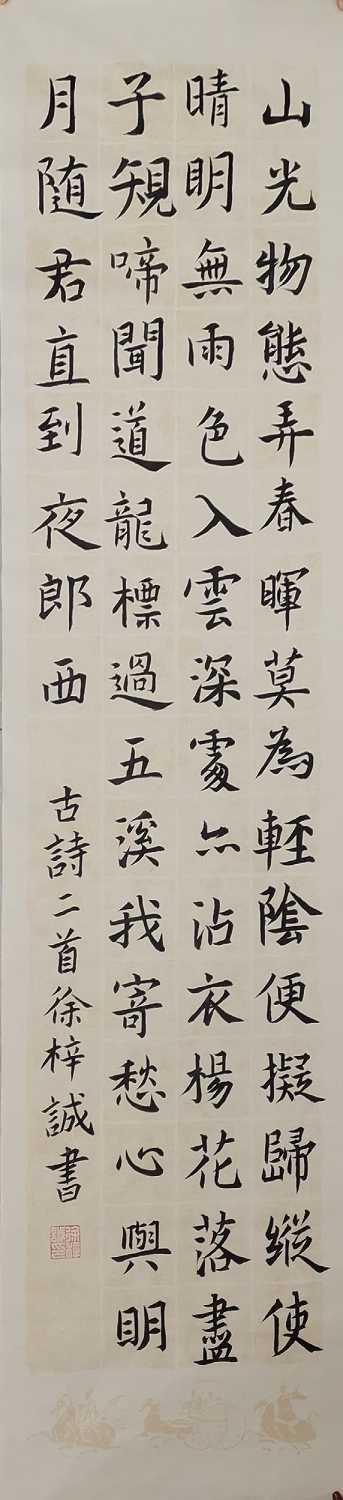 山光物態弄春暉莫為輕陰便擬歸縱使
晴明無雨色入雲深處亦沾衣楊花落盡
子規啼聞道龍標過五溪我寄愁心與明
月随君直到夜郎西
古詩二首徐梓誠書